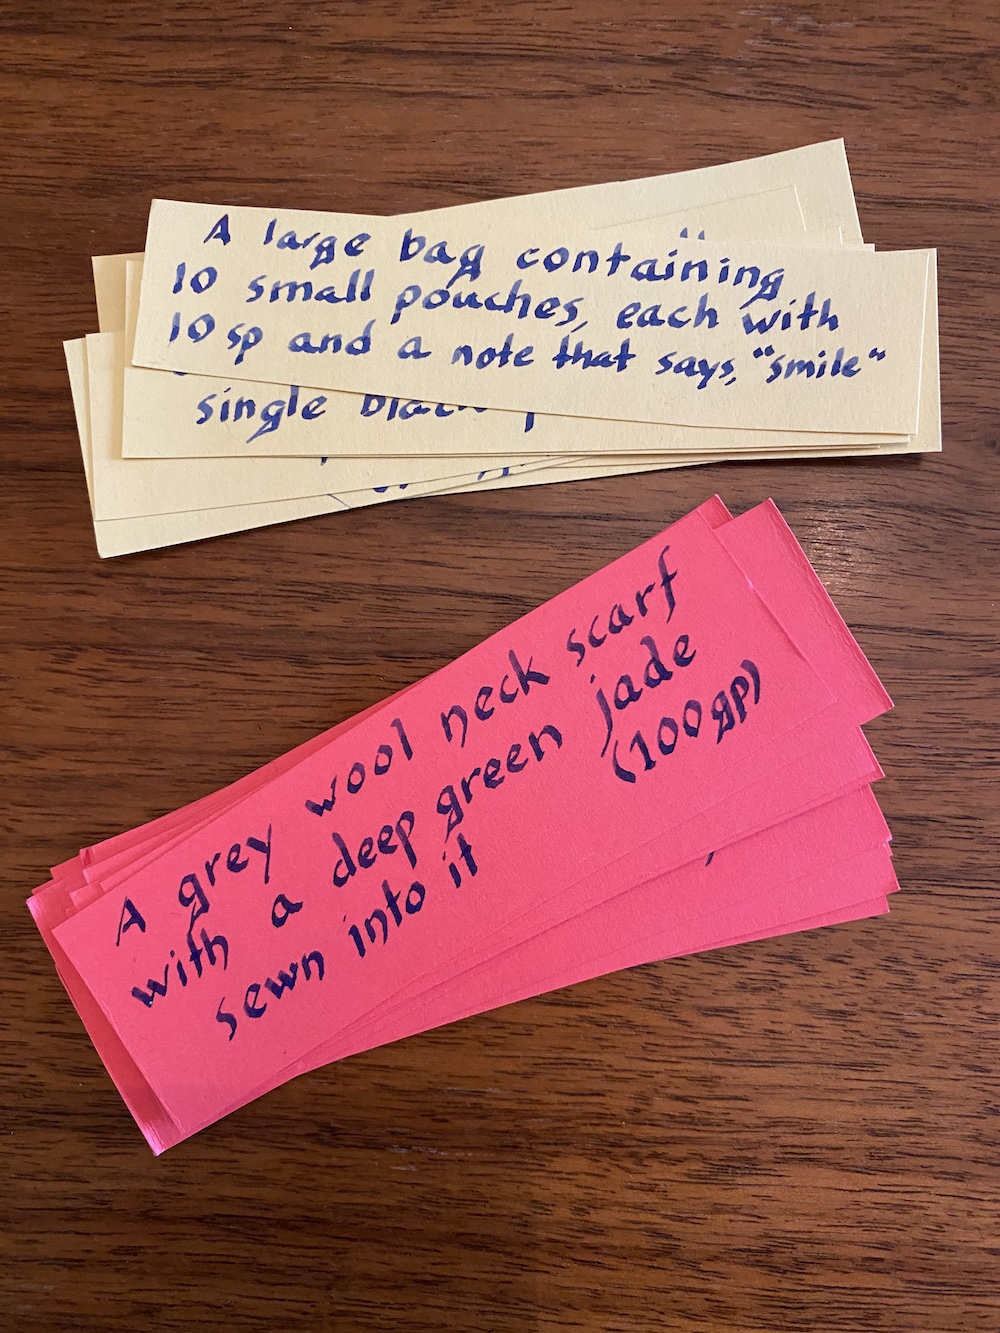 A large bag containing
10 small pouches, each with
10 sp and a note that says, "smile"
single
A grey wool neck scarf
with a deep green jade
sewn into it (100 gp)